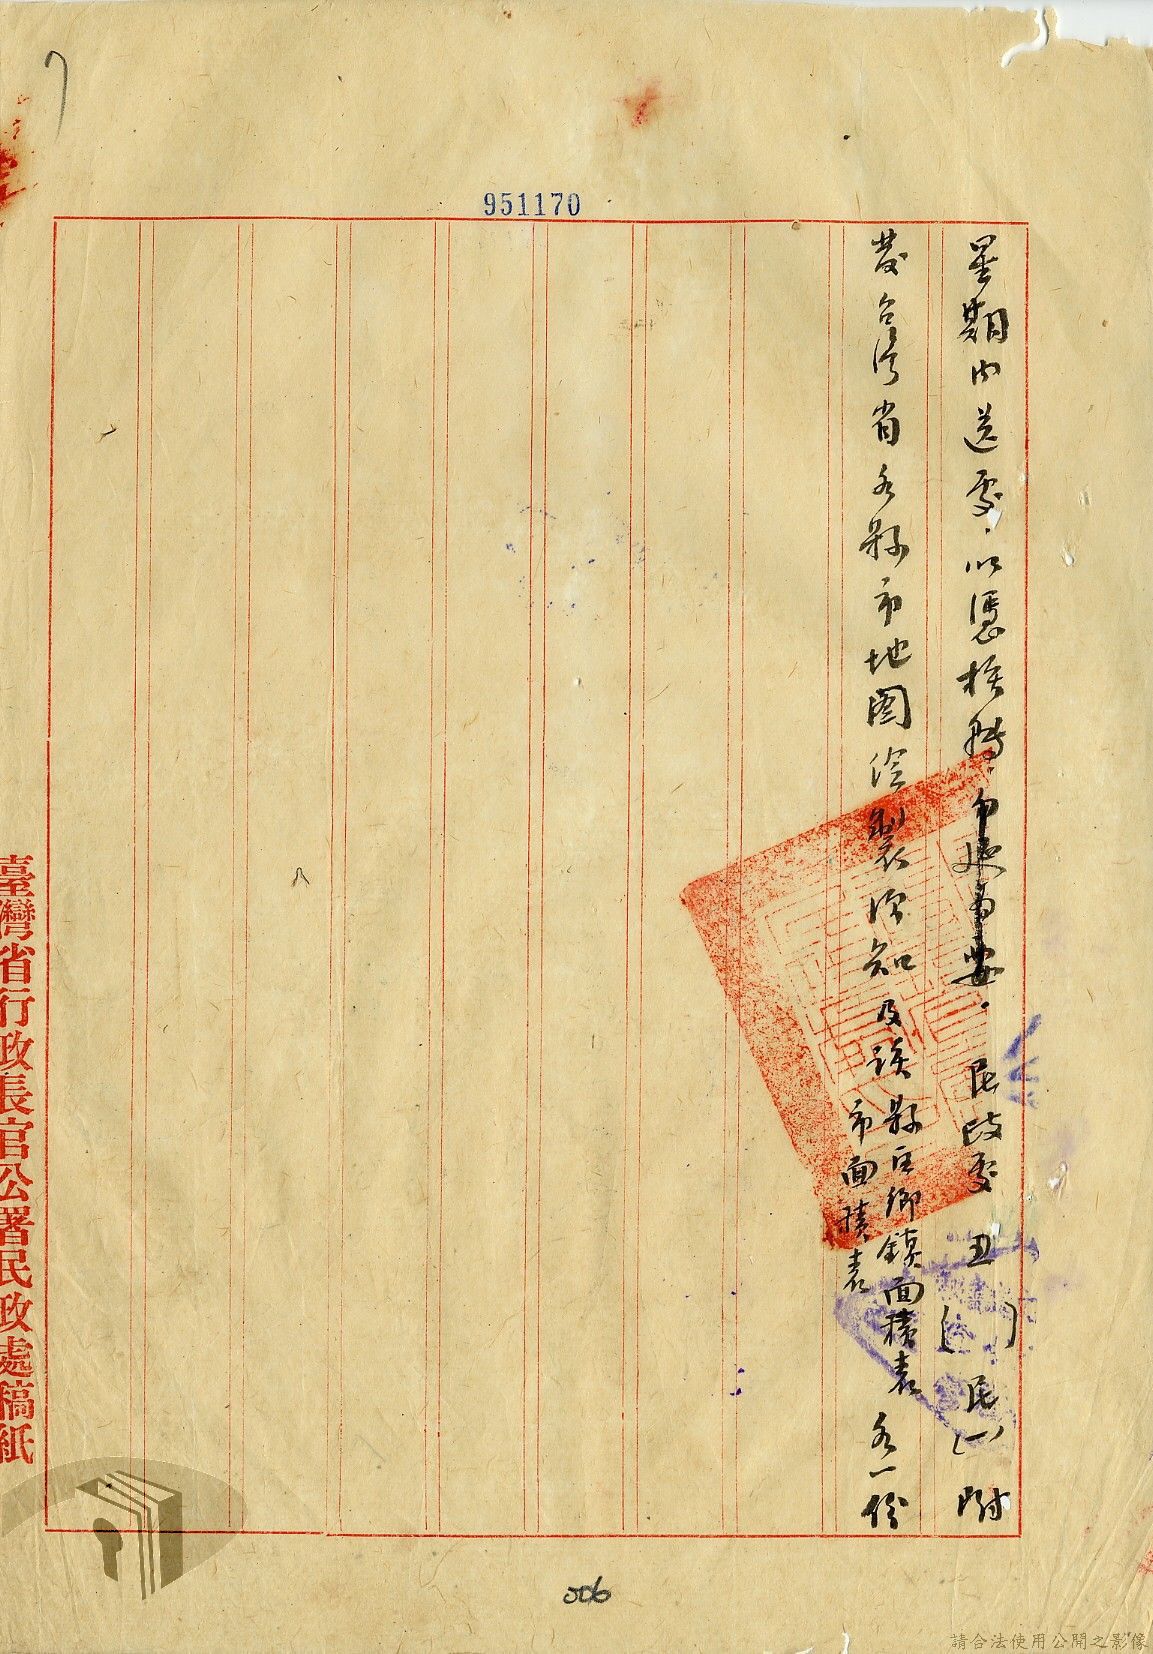 951170
星期内送處，以憑核轉，勿延为要。民政處 丑（ ）民（一）附
發台湾省各縣市地图绘製须知及該縣區鄉鎮面積表
市面積表
各一份
臺灣省行政長官公署民政處稿紙
006
請合法使用公開之影像